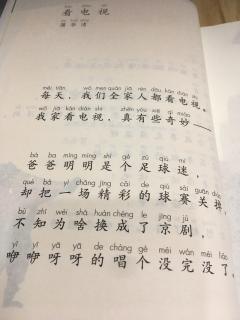 看电视
蒲华清
měi tiān wǒ men quán jiā rén dōu kàn diàn shì
每天，我们全家人都看电视。
wǒ jiā kàn diàn shì zhēn yǒu xiē qí miào
我家看电视，真有些奇妙——
bà ba míng míng shì gè zú qiú mí
爸爸明明是个足球迷，
què bǎ yī chǎng jīng cǎi de qiú sài guān
却把一场精彩的球赛关掉，
bù zhī wèi shà huàn chéng le jīng jù
不知为啥换成了京剧，
yī yī yā yā de chàng gè méi wán méi liǎo
咿咿呀呀的唱个没完没了。